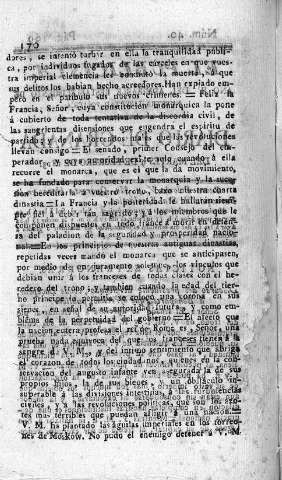 170
dores, se intentó turbar en ella la tranquilidad públi-
ca, por individuos fugados de las cárceles en que vues-
tra imperial clemencia les conmutó la muerte, á que
sus delitos los habian hecho acreedores. Han expiado em-
pero en el patíbulo sus nuevos crímenes. = Feliz la
Francia, Señor, cuya constitucion monárquica la pone
á cubierto de toda tentativa de la discordia civil, de
las sangrientas disensiones que engendra el espíritu de
partido, y de los horrores que las revoluciones
llevan consigo = El senado, primer Consejo del em-
perador, y cuya autoridad existe solo quando á ella
recurre el monarca, que es el que la da movimiento,
se ha fundado para conservar la monarquía y la suce-
sion hereditaria á vuestro trono, baxo nuestra quarta
dinastía = La Francia y la posteridad le hallarán siem-
pre fiel á deber tan sagrado; y á los miembros que le
componen dispuestos en todo lance á morir en defen-
sa del paladion de la seguridad y prosperidad nacio-
nal = En los principios de nuestras antiguas dinastías,
repetidas veces mandó el monarca que se anticiparan
por medio de un juramento solemne, los vínculos que
debian unir á los franceses de todas clases con el he-
redero del trono; y tambien quando la edad del tier-
no príncipe lo permitia se colocó una corona en sus
sienes, en señal de su autoridad futura, y como em-
blema de la perpetuidad del gobierno = El afecto que
la nacion entera profesa al rey de Roma es, Señor, una
prueba nada equívoca del que los franceses tienen á la
sangre de V. M., y del íntimo sentimiento que abriga
el corazon de todos los ciudadanos, que ven en la con-
servacion del augusto infante asegurada la de sus
propios hijos, la de sus bienes, y un obstáculo in-
superable á las divisiones intestinas, á las turbulencias
civiles, y á las revoluciones políticas, que son los azo-
tes mas terribles que puedan afligir á una nacion =
V. M. ha plantado las águilas imperiales en los torreo-
nes de Moskow. No pudo el enemigo detener á V. M.